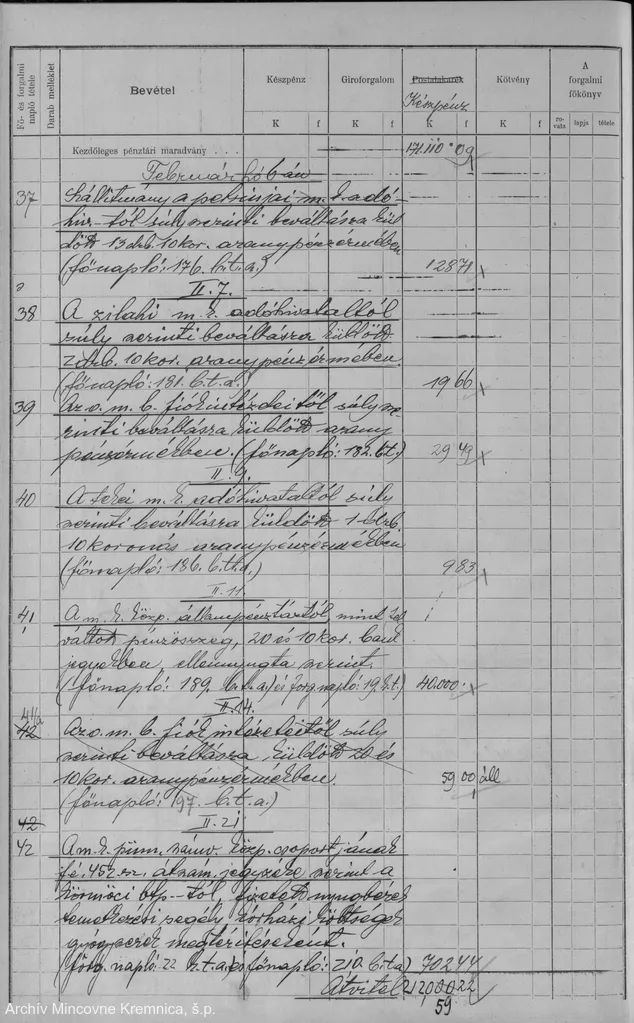 Fő- és forgalmi napló tétele
Darab melléklet
Bevétel
Készpénz
Giroforgalom
Postatakarék
Készpénz
Kötvény
A forgalmi főkönyv
K f K f K f K f rovata lapja tétele
Kezdőleges pénztári maradvány . . . 171.110 09
Február hóban
37 Szállítmány a petrinjai m. k. adó-
hiv.-tól súly szerinti beváltásra kül
dött 13 drb. 10 kor. aranypénzérmében
(főnapló: 176. b.t.a.) 128 71
II. 7.
38 A zilahi m. k. adóhivataltól
súly szerinti beváltásra küldött
2 drb. 10 kor. aranypénzérmében.
(főnapló: 181. b.t.a.) 19 66
39 Az o. m. b. fiókintézeteitől súly sze
rinti beváltásra küldött arany
pénzérmékben. (főnapló: 182. b.t.) 29 49
II. 9.
40 A m. k. adóhivataltól súly
szerinti beváltásra küldött 1 drb.
10 koronás aranypénzérmékben
(főnapló: 186. b.t.a.) 9 83
II. 11.
41 A m. k. közp. állampénztártól, mint
pénzösszeg, 20 és 10 kor. bank
jegyekben, ellennyugta szerint.
(főnapló: 189. b.t.a.) és forg. napló: 19. k.t.) 40.000
II. 14.
41/a
42 Az o. m. b. fiók intézeteitől súly
szerinti beváltásra küldött 20 és
10 kor. aranypénzérmékben.
(főnapló: 197. b.t.a.) 59 00 áll
II. 21
42
42 A m. k. pénz. számv. közp. csoportjának
452 sz. átszám. jegyzéke szerint a
körmöci btp.-tól fizetett nyugbérek
temetkezési segély kórházi költségek
gyógyszerek megtérítéseként.
(forg. napló: 22 k.t.a.) és főnapló: 210. b.t.a) 702 44
Átvitel 212.000 22
59
Archív Mincovne Kremnica, š.p.